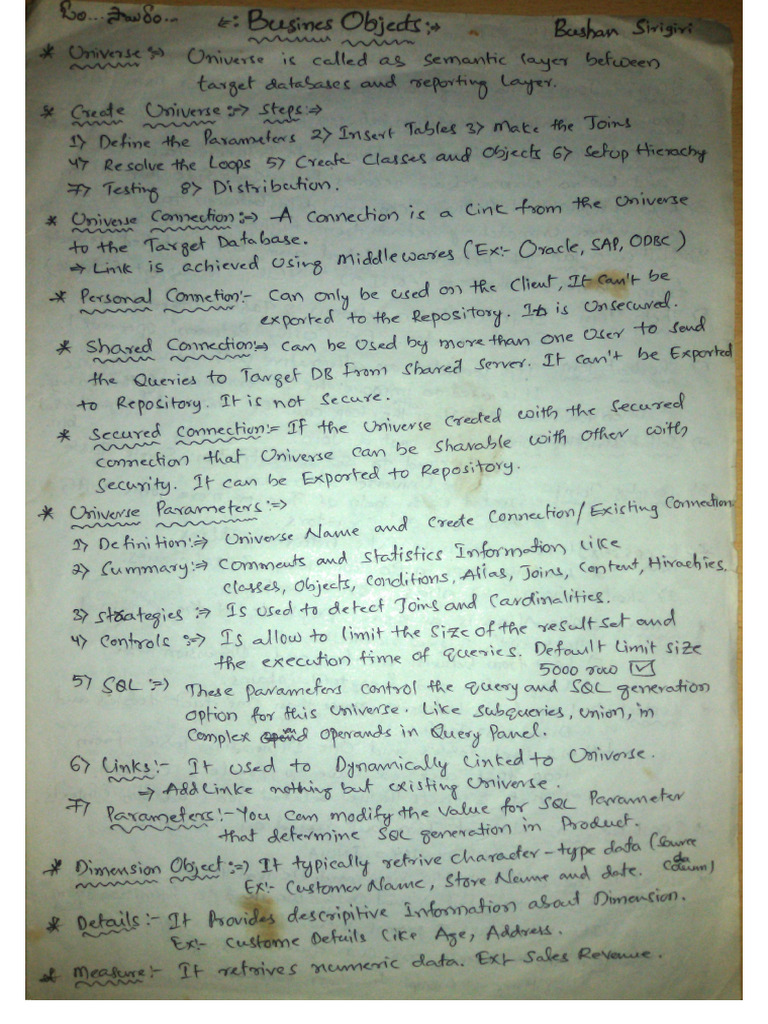 ఓం...సాయిరాం... ⇐: Busines Objects:→ Bushan Sirigiri
* Universe :→ Universe is called as semantic layer between
target databases and reporting Layer.
* Create Universe :→ Steps :→
1> Define the Parameters 2> Insert Tables 3> Make the Joins
4> Resolve the Loops 5> Create Classes and Objects 6> Setup Hierachy
7> Testing 8> Distribution.
* Universe Connection :→ A connection is a Link from the Universe
to the Target Database.
⇒ Link is achieved using Middlewares (Ex:- Oracle, SAP, ODBC)
* Personal Connetion :- Can only be used on the Client, It Can't be
exported to the Repository. It is Unsecured.
* Shared Connection :→ Can be Used by more than one User to send
the Queries to Target DB from Shared Server. It can't be Exported
to Repository. It is not Secure.
* Secured Connection := If the Universe Creted with the Secured
connection that Universe can be Sharable with other with
Security. It can be Exported to Repository.
* Universe Parameters :→
1> Definition :→ Universe Name and Create Connection/Existing Connection
2> Summary :→ Comments and Statistics Information like
Classes, Objects, Conditions, Alias, Joins, Content, Hirachies.
3> Strategies :→ Is used to detect Joins and Cardinalities.
4> Controls :→ Is allow to limit the size of the result set and
the execution time of queries. Default Limit size
5000 row ☑
5> SQL :→ These parameters control the query and SQL generation
option for this Universe. Like Subqueries, union, in
Complex Operands in Query Panel.
6> Links :- It used to Dynamically Linked to Universe.
→ Add Linke nothing but existing Universe.
7> Parameters :- You can modify the value for SQL Parameter
that determine SQL generation in Product.
* Dimension Object :→ It typically retrive character-type data (Source
Ex:- Customer Name, Store Name and date. Coloum)
* Details :- It Provides descripitive Information about Dimension.
Ex:- Custome Details like Age, Address.
* Measure :- It retrives numeric data. Ex:- Sales Revenue.